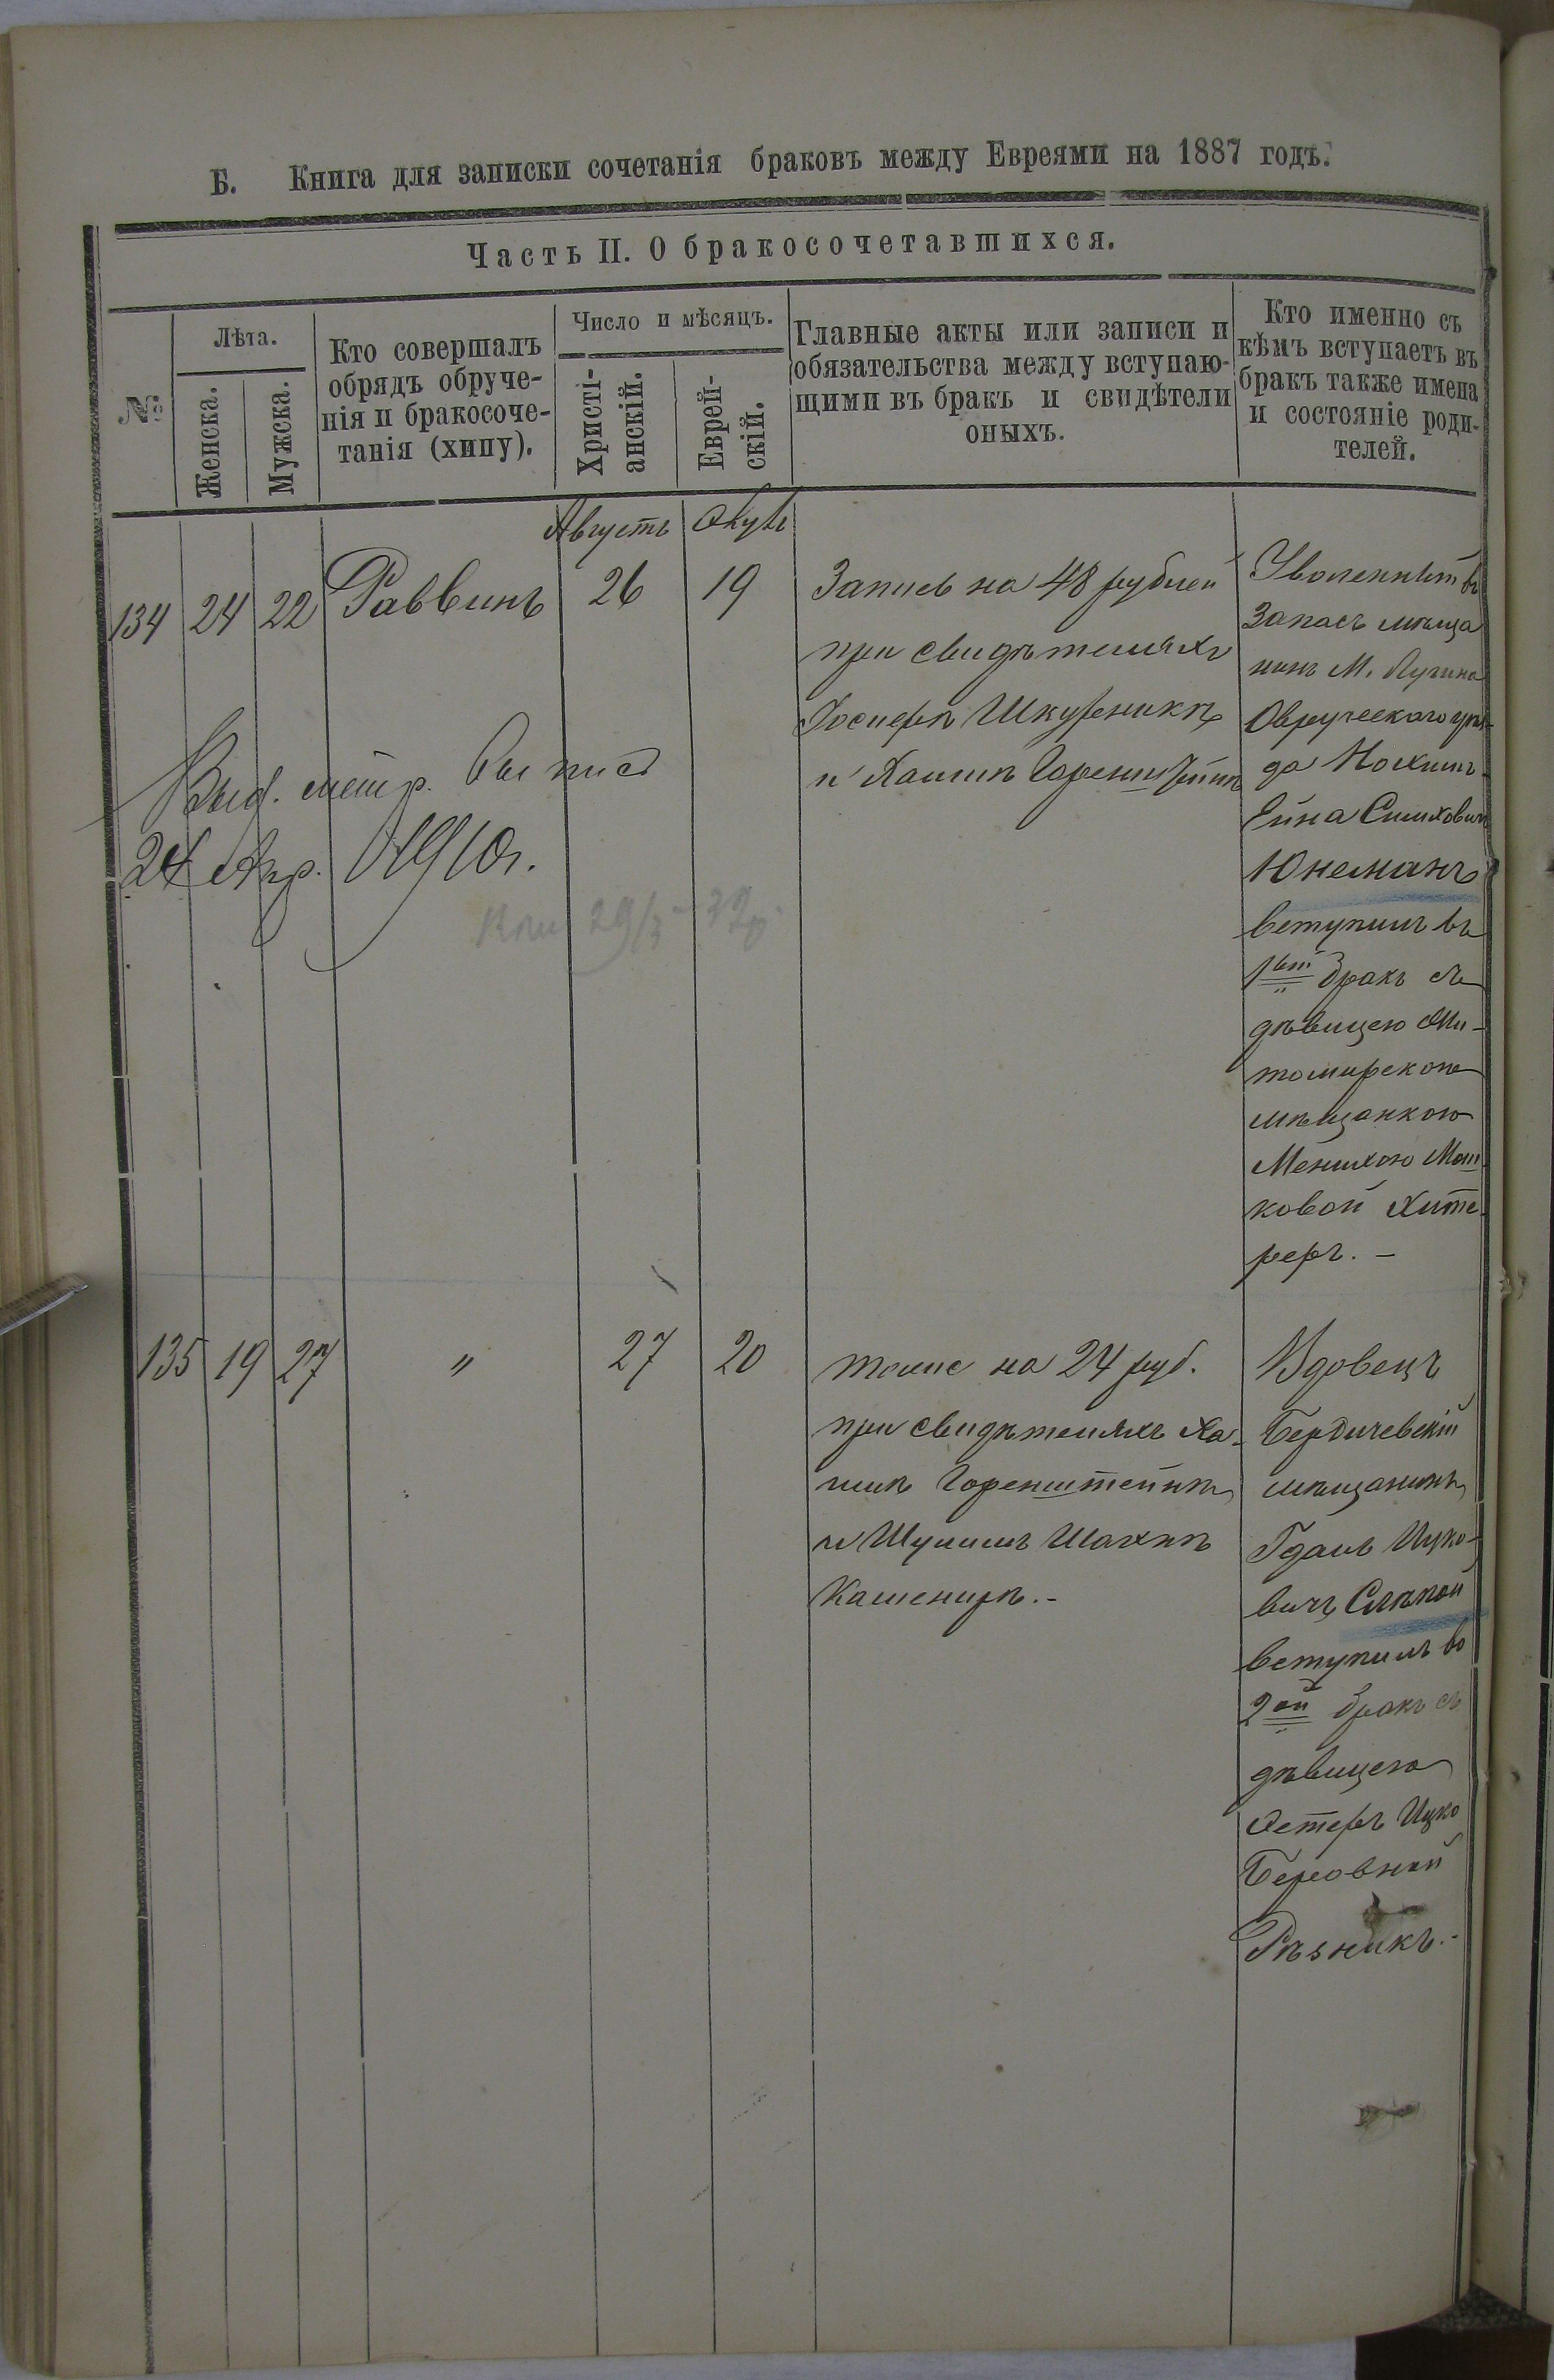 Б. Книга для записки сочетанія браковъ между Евреями на 1887 годъ.
Часть II. О бракосочетавшихся.
№
Лѣта.
Женска.
Мужска.
Кто совершалъ
обрядъ обруче-
нія и бракосоче-
танія (хипу).
Число и мѣсяцъ.
Христі-
анскій.
Еврей-
скій.
Главные акты или записи и
обязательства между вступаю-
щими въ бракъ и свидѣтели
оныхъ.
Кто именно съ
кѣмъ вступаетъ въ
бракъ также имена
и состояніе роди-
телей.
Августъ
134 24 22 Раввинъ 26 19
Запись на 48 рублей
при свидѣтеляхъ
Іосифѣ Шкурникѣ
и Хаимѣ Горенштейнѣ
Уволенный въ
Запасъ мѣща
нинъ М. Лугина
Овручскаго уѣз-
да Нохимъ-
Ейна Симхович
Юнеманъ
вступилъ въ
1вый бракъ съ
дѣвицею Жи-
томирскою
мѣщанкою
Менихою Мош
ковой Хите
реръ. –
Выд. метр. выпись
24 Апр. 1910г.
29/3
135 19 27 " 27 20
тоже на 24 руб.
при свидѣтеляхъ Ха-
имѣ Горенштейнѣ
и Шулимъ Шахнѣ
Кашенирѣ. -
Вдовецъ
Бердичевскій
мѣщанинъ
Гдаль Ицко-
вичъ Слѣпой
вступилъ во
2ой бракъ съ
дѣвицею
Эстеръ Ицко
Беровной
Рѣзникъ. -